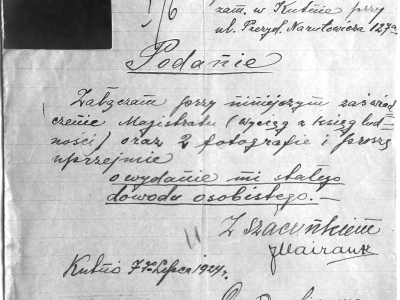 zam. w Kutnie przy
ul. Prezyd. Narutowicza 127a
Podanie
Załączam przy niniejszym zaświad-
czenie Magistratu (wyciąg z ksiąg lud-
ności) oraz 2 fotografie i proszę
uprzejmie
o wydanie mi stałego
dowodu osobistego.—
Z szacunkiem
Kutno 7go Lipca 1924 r.